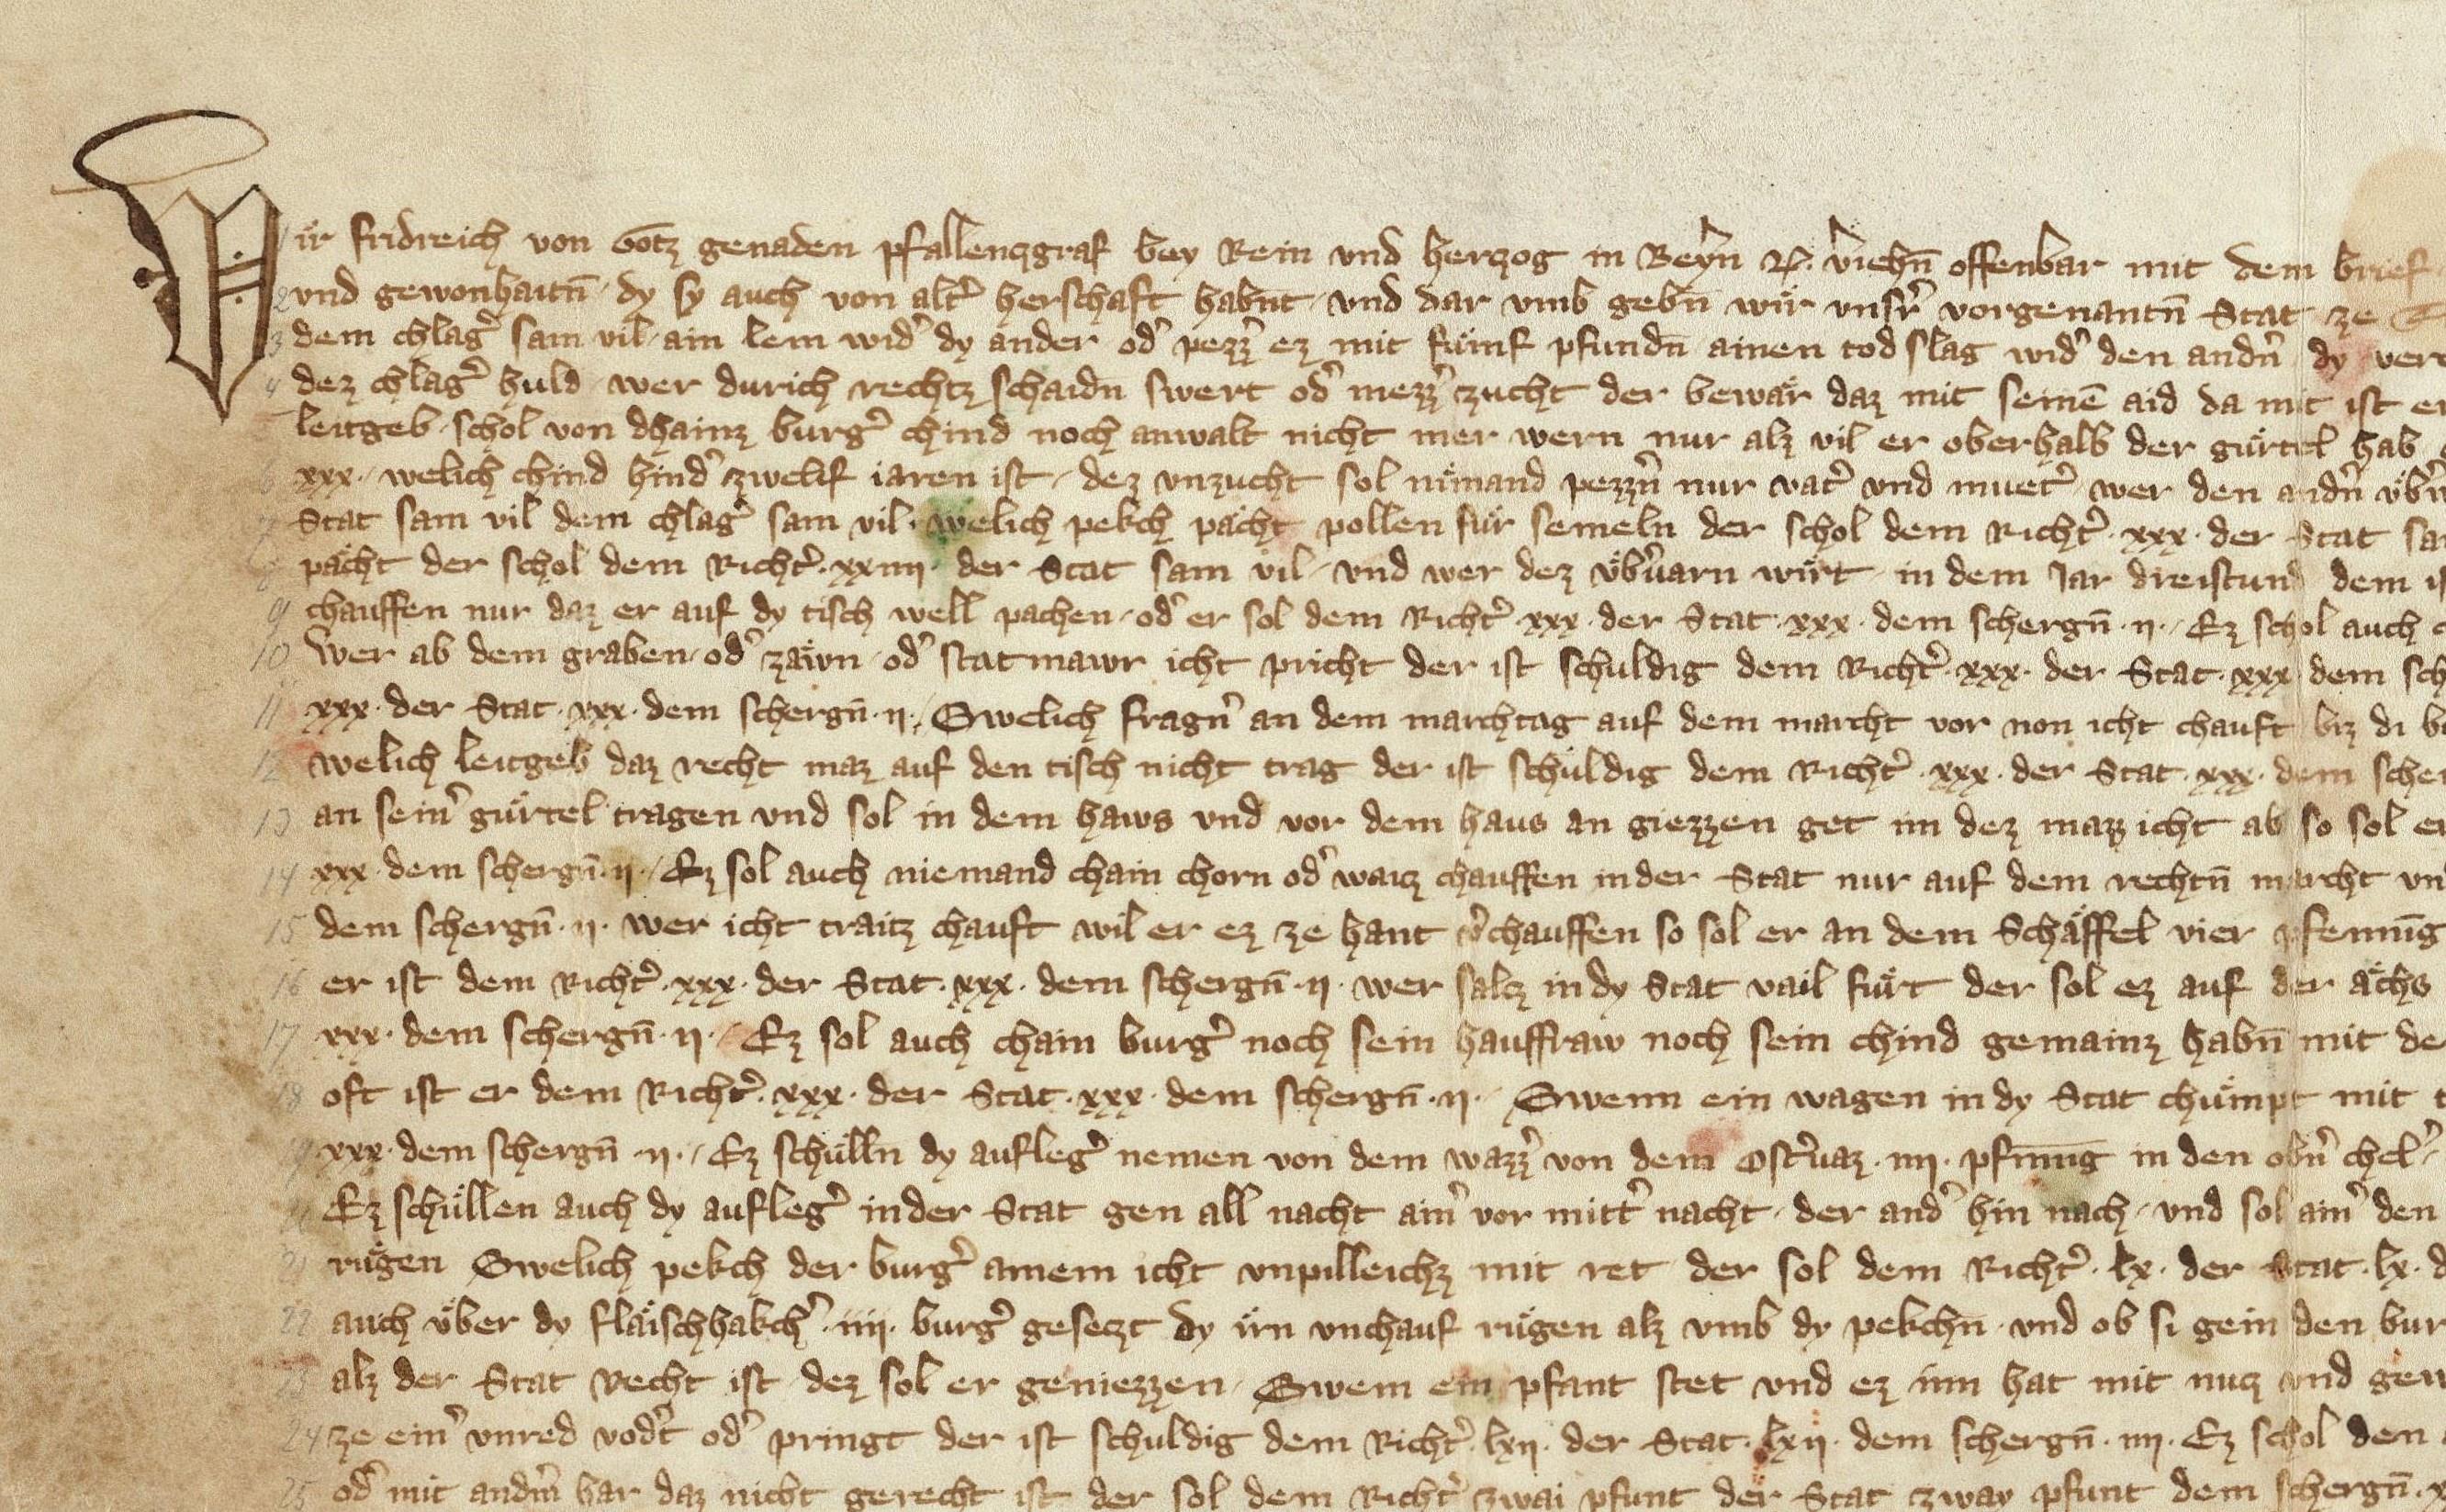 Wir fridreich von Gotz genaden pfallenczgraf bey Rein vnd herczog in Beyrn ꝛc. v̾iehn̄ offenbar mit dem brief
2 vnd gewonhaitn̄ dy sy auch von alt̾ herschaft habnt vnd dar vmb gebn̄ wir vnsr̾ vorgenantn̄ Stat ze
3 dem chlag̾ sam vil ain lem wid̾ dy ander od̾ pezz̾ ez mit fuͤmf pfundn̄ ainen tod slag wid̾ den andn̾ dy
4 dez chlag̾ huld wer durich rechtz schaidn swert od̾ mezz̾ zucht der bewaͤr daz mit seinē aid da mit ist er
leitgeb schol von dhainz burg̾ chind noch anwalt nicht mer wern nur alz vil er oberhalb der guͤrtel hab
6 xxx. welich chind hind̾ zwelif iaren ist dez vnzucht sol niemand pezzn̾ nur vat̾ vnd muet̾ wer den andn̾
7 Stat sam vil dem chlag̾ sam vil. welich pekch paͤcht pollen fuͤr semeln der schol dem Richt̾ .xxx. der Stat
8 paͤcht der schol dem Richt̾ .xxiiii. der Stat sam vil vnd wer dez vͤbv̾arn wirt in dem Jar dreistund dem
9 chauffen nur daz er auf dy tisch well pachen od̾ er sol dem Richt̾ .xxx. der Stat .xxx. dem schergn̄ .ii. Ez schol auch
10 Wer ab dem graben od̾ zaͤwn od̾ statmawr icht pricht der ist schuldig dem Richt̾ .xxx. der Stat .xxx. dem
11 xxx. der Stat .xxx. dem schergn̄ .ii. Swelich fragn̾ an dem marchtag auf dem marcht vor non icht chauft biz di
12 welich leitgeb daz recht maz auf den tisch nicht trag der ist schuldig dem Richt̾ .xxx. der Stat .xxx. dem
13 an sein̾ guͤrtel tragen vnd sol in dem haws vnd vor dem haus an giezzen get im dez mazz icht ab so sol er
14 xxx. dem schergn̄ .ii. Ez sol auch niemand chain chorn od̾ waicz chauffen in der Stat nur auf dem rechtn̄ marcht
15 dem schergn̄ .ii. wer icht traitz chauft wil er ez ze hant v̾chauffen so sol er an dem Schaͤffel vier pfennīg
16 er ist dem Richt̾ .xxx. der Stat .xxx. dem schergn̄ .ii. wer salcz in dy Stat vail fuͤrt der sol ez auf der aͤchs
17 xxx. dem schergn̄ .ii. Ez sol auch chain burg̾ noch sein hauffraw noch sein chind gemainz habn̄ mit
18 oft ist er dem Richt̾ .xxx. der Stat .xxx. dem schergn̄ .ii. Swenn ein wagen in dy Stat chuͤmpt mit
19 xxx. dem schergn̄ .ii. Ez schuͤlln dy aufleg̾ nemen von dem wazz̾ von dem Ost̾vaz .iiii. pfn̄nīg in den obn̾ chel̾
Ez schuͤllen auch dy aufleg̾ in der Stat gen all nacht ain̾ vor mitt̾ nacht der and̾ hin nach vnd sol ain̾ den
21 ruͤgen Swelich pekch der burg̾ ainem icht vnpilleichz mit ret der sol dem Richt̾ .lx. der Stat .lx.
22 auch vͤber dy flaͤischhakch̾ .iiii. burg̾ geseczt dy irn vnchauf ruͤgen alz vmb dy pekchn̄ vnd ob si gein den
23 alz der Stat recht ist dez sol er geniezzen Swem ein pfant stet vnd ez inn hat mit nucz vnd
24 ze ein̾ vnred vod̾t od̾ pringt der ist schuldig dem Richt̾ .lxii. der Stat .lxii. dem schergn̄ .iiii. Ez schol den
25 od̾ mit andm̾ har daz nicht gerecht ist der sol dem Richt̾ zwai pfunt der Stat zway pfunt dem schergn̄